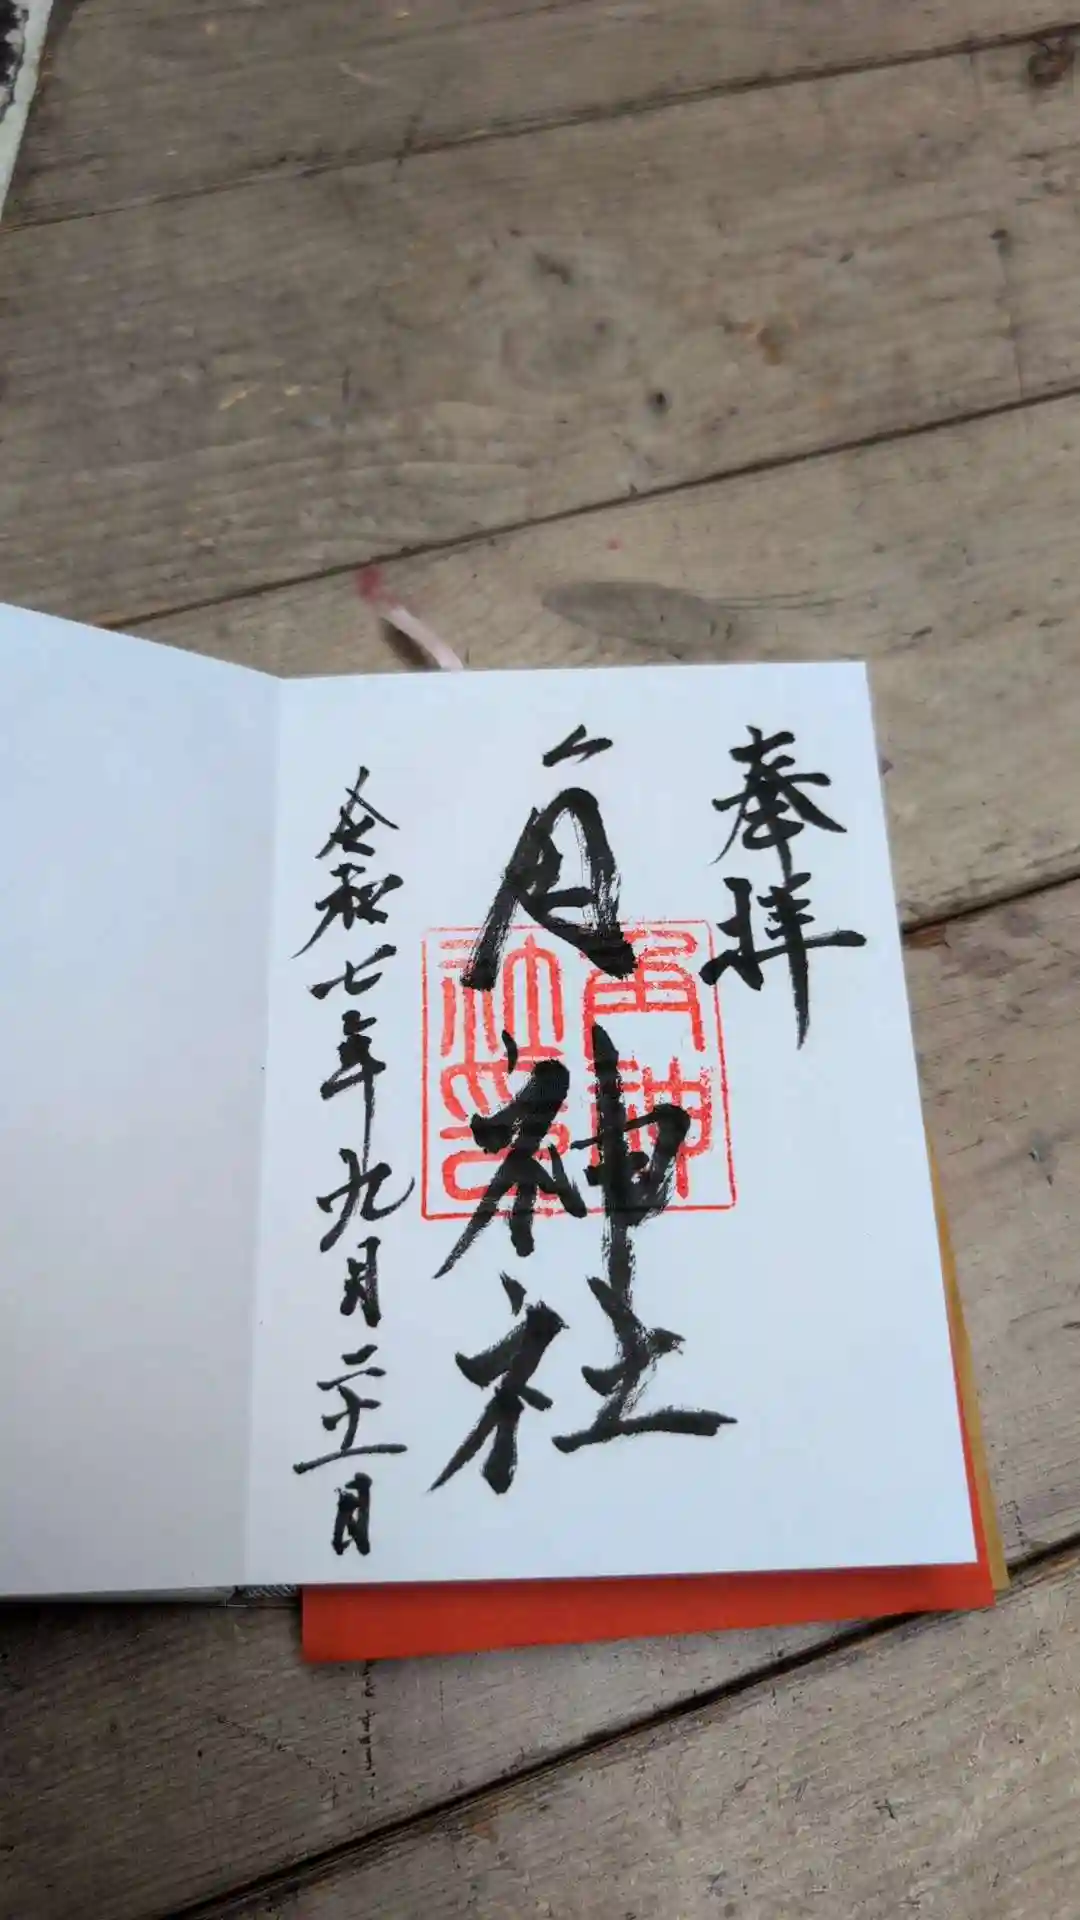 奉拝
角神社
令和七年九月二十一日
角神社印